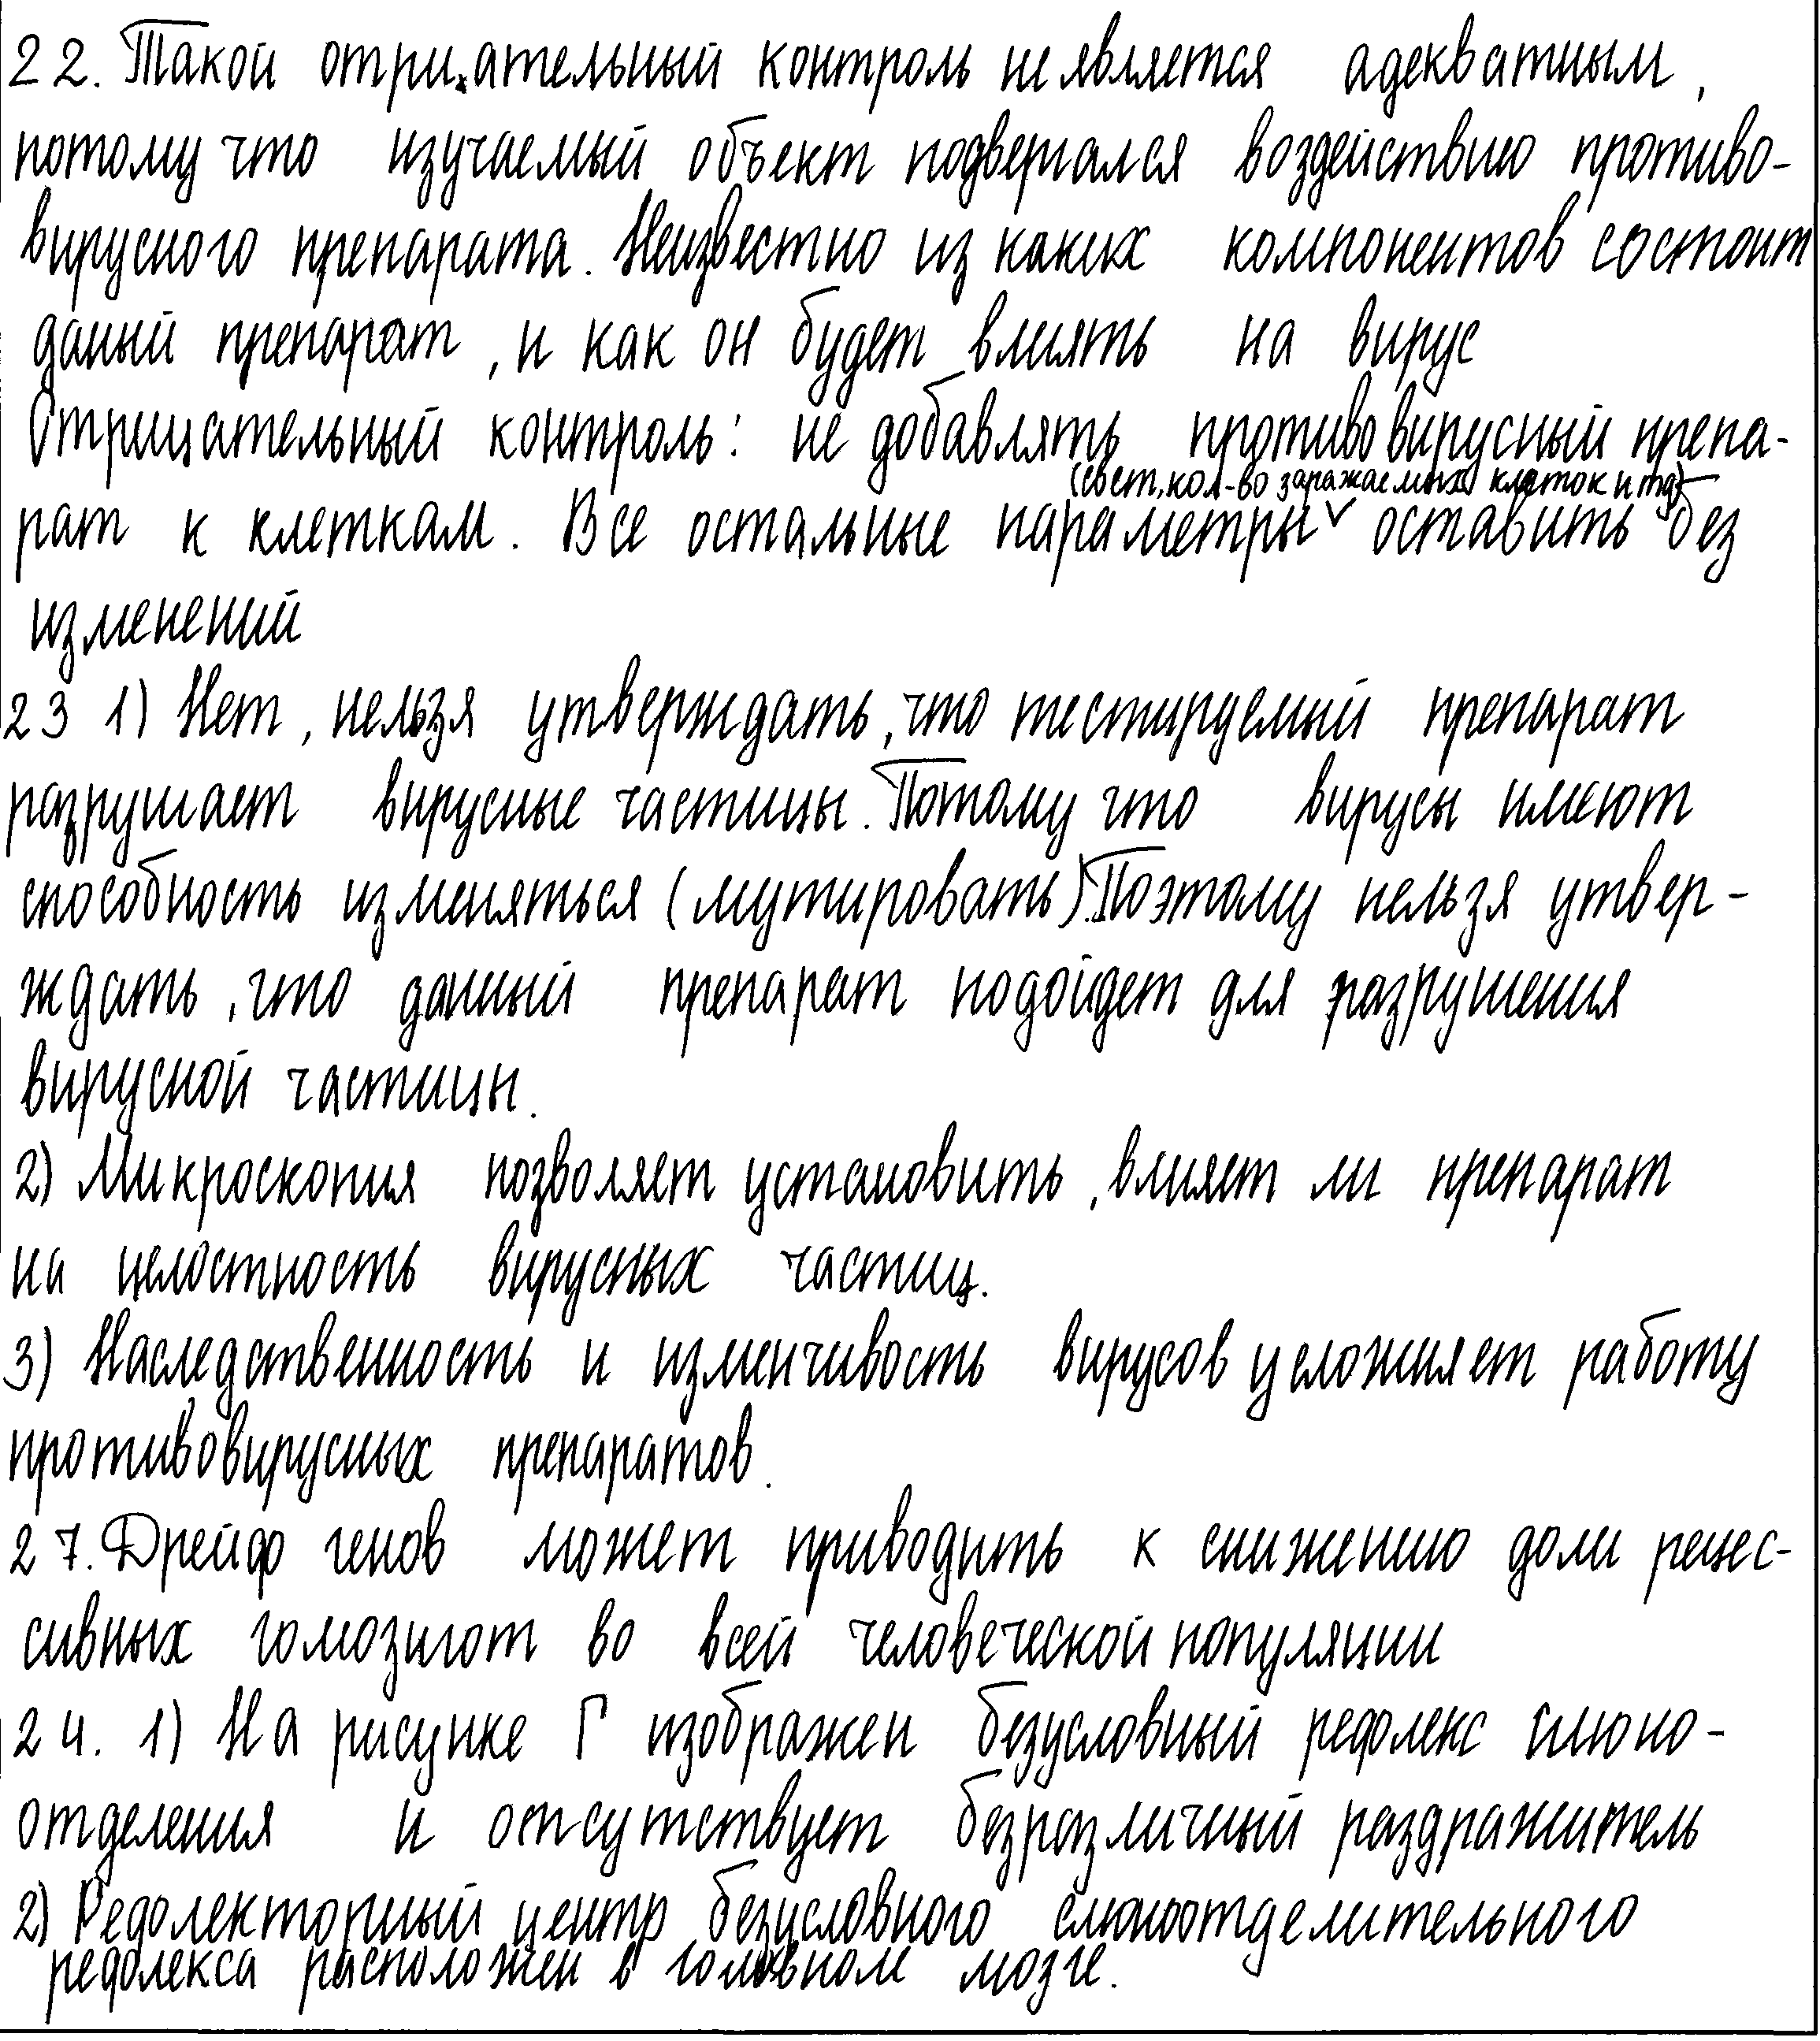 22. Такой отрицательный контроль не является адекватным,
потому что изучаемый объект подвергался воздействию противо-
вирусного препарата. Неизвестно из каких компонентов состоит
даный препарат, и как он будет влиять на вирус
Отрицательный контроль: не добавлять противовирусный препа-
(свет, кол-во заражаемых клеток и тд)
рат к клеткам. Все остальные параметры оставить без
изменений
23 1) Нет, нельзя утверждать, что тестируемый препарат
разрушает вирусные частицы. Потому что вирусы имеют
способность изменяться (мутировать). Поэтому нельзя утвер-
ждать, что данный препарат подойдет для разрушения
вирусной частицы.
2) Микроскопия позволяет установить, влияет ли препарат
на целостность вирусных частиц.
3) Наследственность и изменчивость вирусов усложняет работу
противовирусных препаратов.
27. Дрейф генов может приводить к снижению доли рецес-
сивных гомозигот во всей человеческой популяции
24. 1) На рисунке Г изображен безусловный рефлекс слюно-
отделения и отсутствует безразличный раздражитель
2) Рефлекторный центр безусловного слюноотделительного
рефлекса расположен в головном мозге.